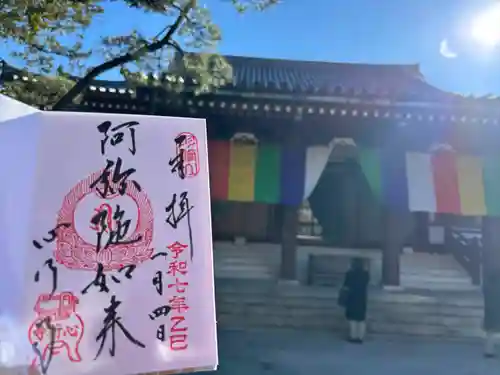 奉拝
令和七年乙巳
一月四日
阿弥陀如来
心行寺